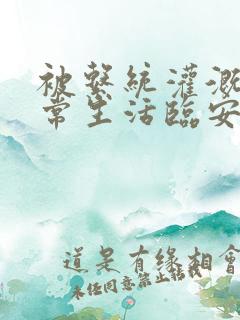 被系統灌溉
常生活臨安
道是有緣相會
未经同意禁止转载